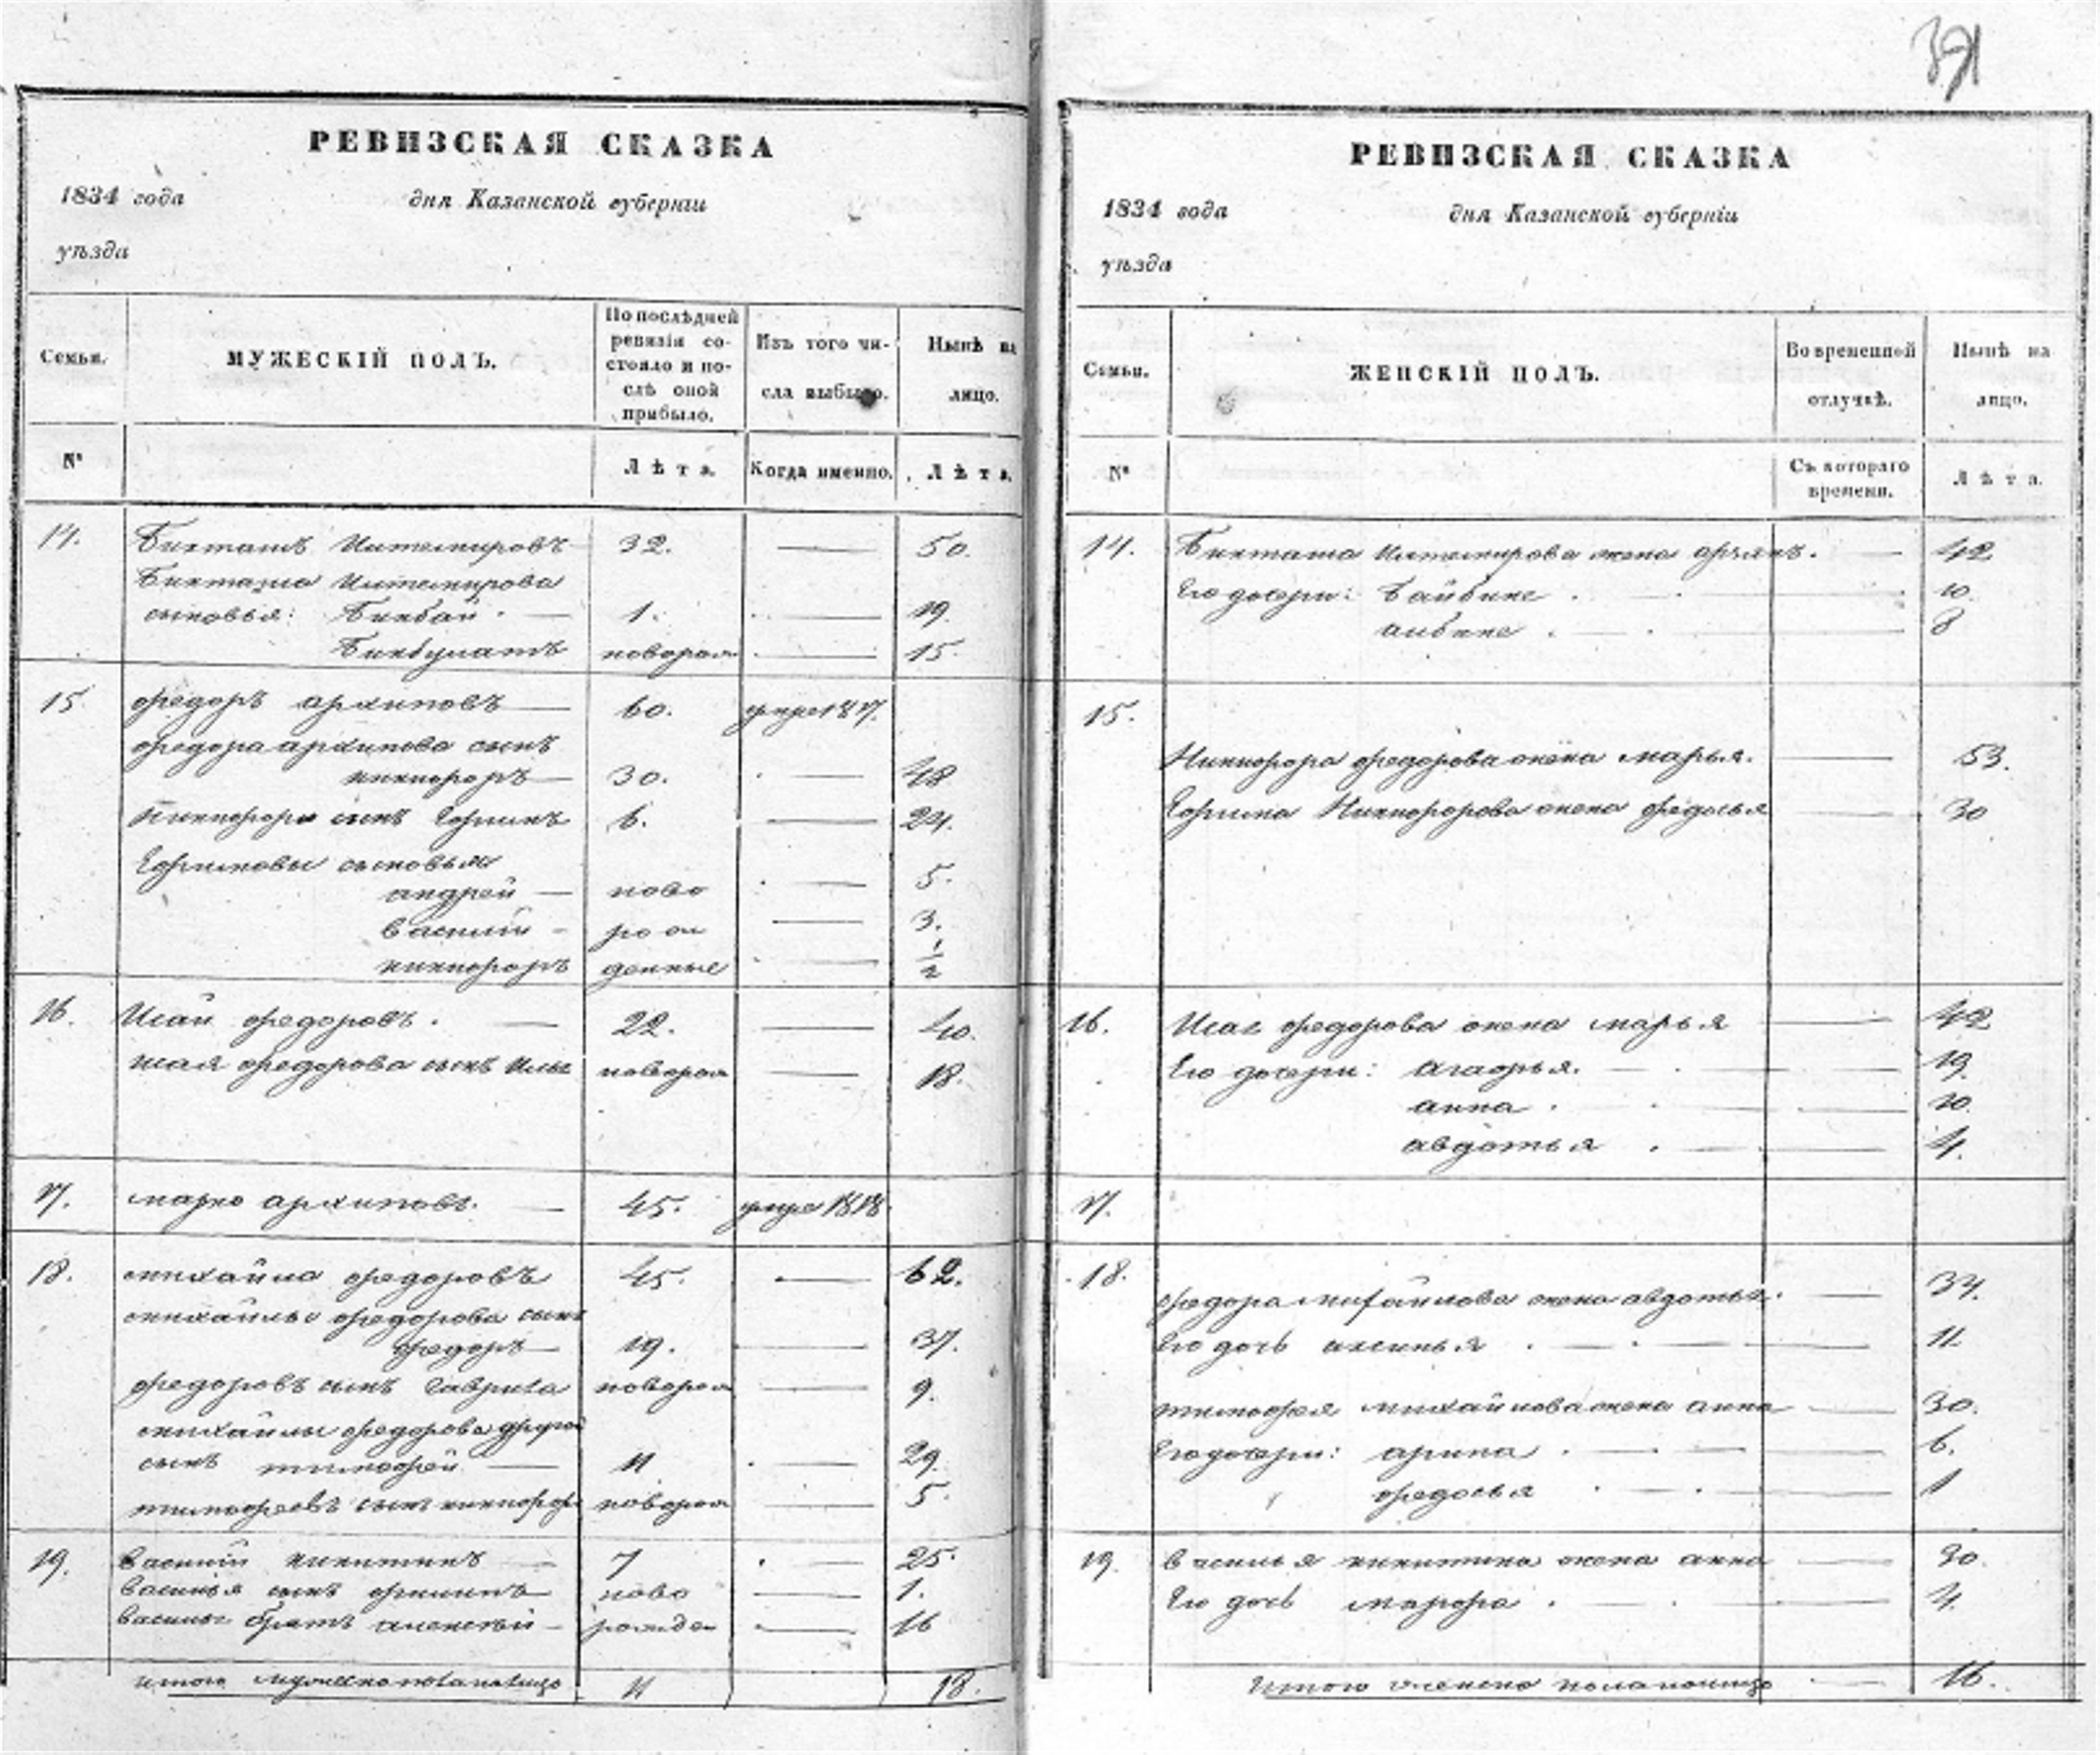 371
РЕВИЗСКАЯ СКАЗКА
1834 года дня Казанской губерніи
уѣзда
Семьи. МУЖЕСКІЙ ПОЛЪ. По послѣдней ревизіи состояло и послѣ оной прибыло. Изъ того числа выбыло. Нынѣ на лицо.
№ Лѣта. Когда именно. Лѣта.
14. Бикташъ Иштемировъ 32. — 50.
Бикташа Иштемирова
сыновья: Бикбай 1. — 19.
Бикбулатъ новорож — 15.
15 Федоръ Архиповъ — 60. умре 187.
Федора Архипова сынъ
Никифоръ — 30. — 48
Никифора сынъ Ефимъ 6. — 24.
Ефимовы сыновья
Андрей — ново — 5.
Василий — рож — 3.
Никифоръ денные — 1/2
16. Исай Федоровъ. — 22. — 40.
Исая Федорова сынъ Илья новорож — 18.
17. Марко Архиповъ. — 45. умре 1818.
18. Михайла Федоровъ 45. — 62.
Михайлы Федорова сынъ
Федоръ — 19. — 37.
Федоровъ сынъ Гаврила новорож — 9.
Михайлы Федорова другой
сынъ Тимофей — 11 — 29.
Тимофеевъ сынъ Никифоръ новорож — 5.
19. Василий Никитинъ — 7 — 25.
Василья сынъ Филипъ ново — 1.
Василья братъ Алексѣй — рожден — 16
Итого мужеска пола налицо 11 18.
РЕВИЗСКАЯ СКАЗКА
1834 года дня Казанской губерніи
уѣзда
Семьи. ЖЕНСКІЙ ПОЛЪ. Во временной отлучкѣ. Нынѣ на лицо.
№ Съ котораго времени. Лѣта.
14. Бикташа Иштемирова жена — 42
Его дочери: Байбике — 10.
Аибике — 8
15.
Никифора Федорова жена Марья. — 53.
Ефима Никифорова жена Федосья — 30
16. Исая Федорова жена Марья — 42
Его дочери: Агафья. — 19.
Анна — 10.
Авдотья — 4.
17.
18.
Федора Михайлова жена Авдотья. — 34.
Его дочь Аксинья — 11
Тимофея Михайлова жена Анна — 30.
Его дочери: Арина — 6.
Федосья — 1
19. Василья Никитина жена Анна — 30.
Его дочь Марфа — 4.
Итого женска пола налицо — 16.